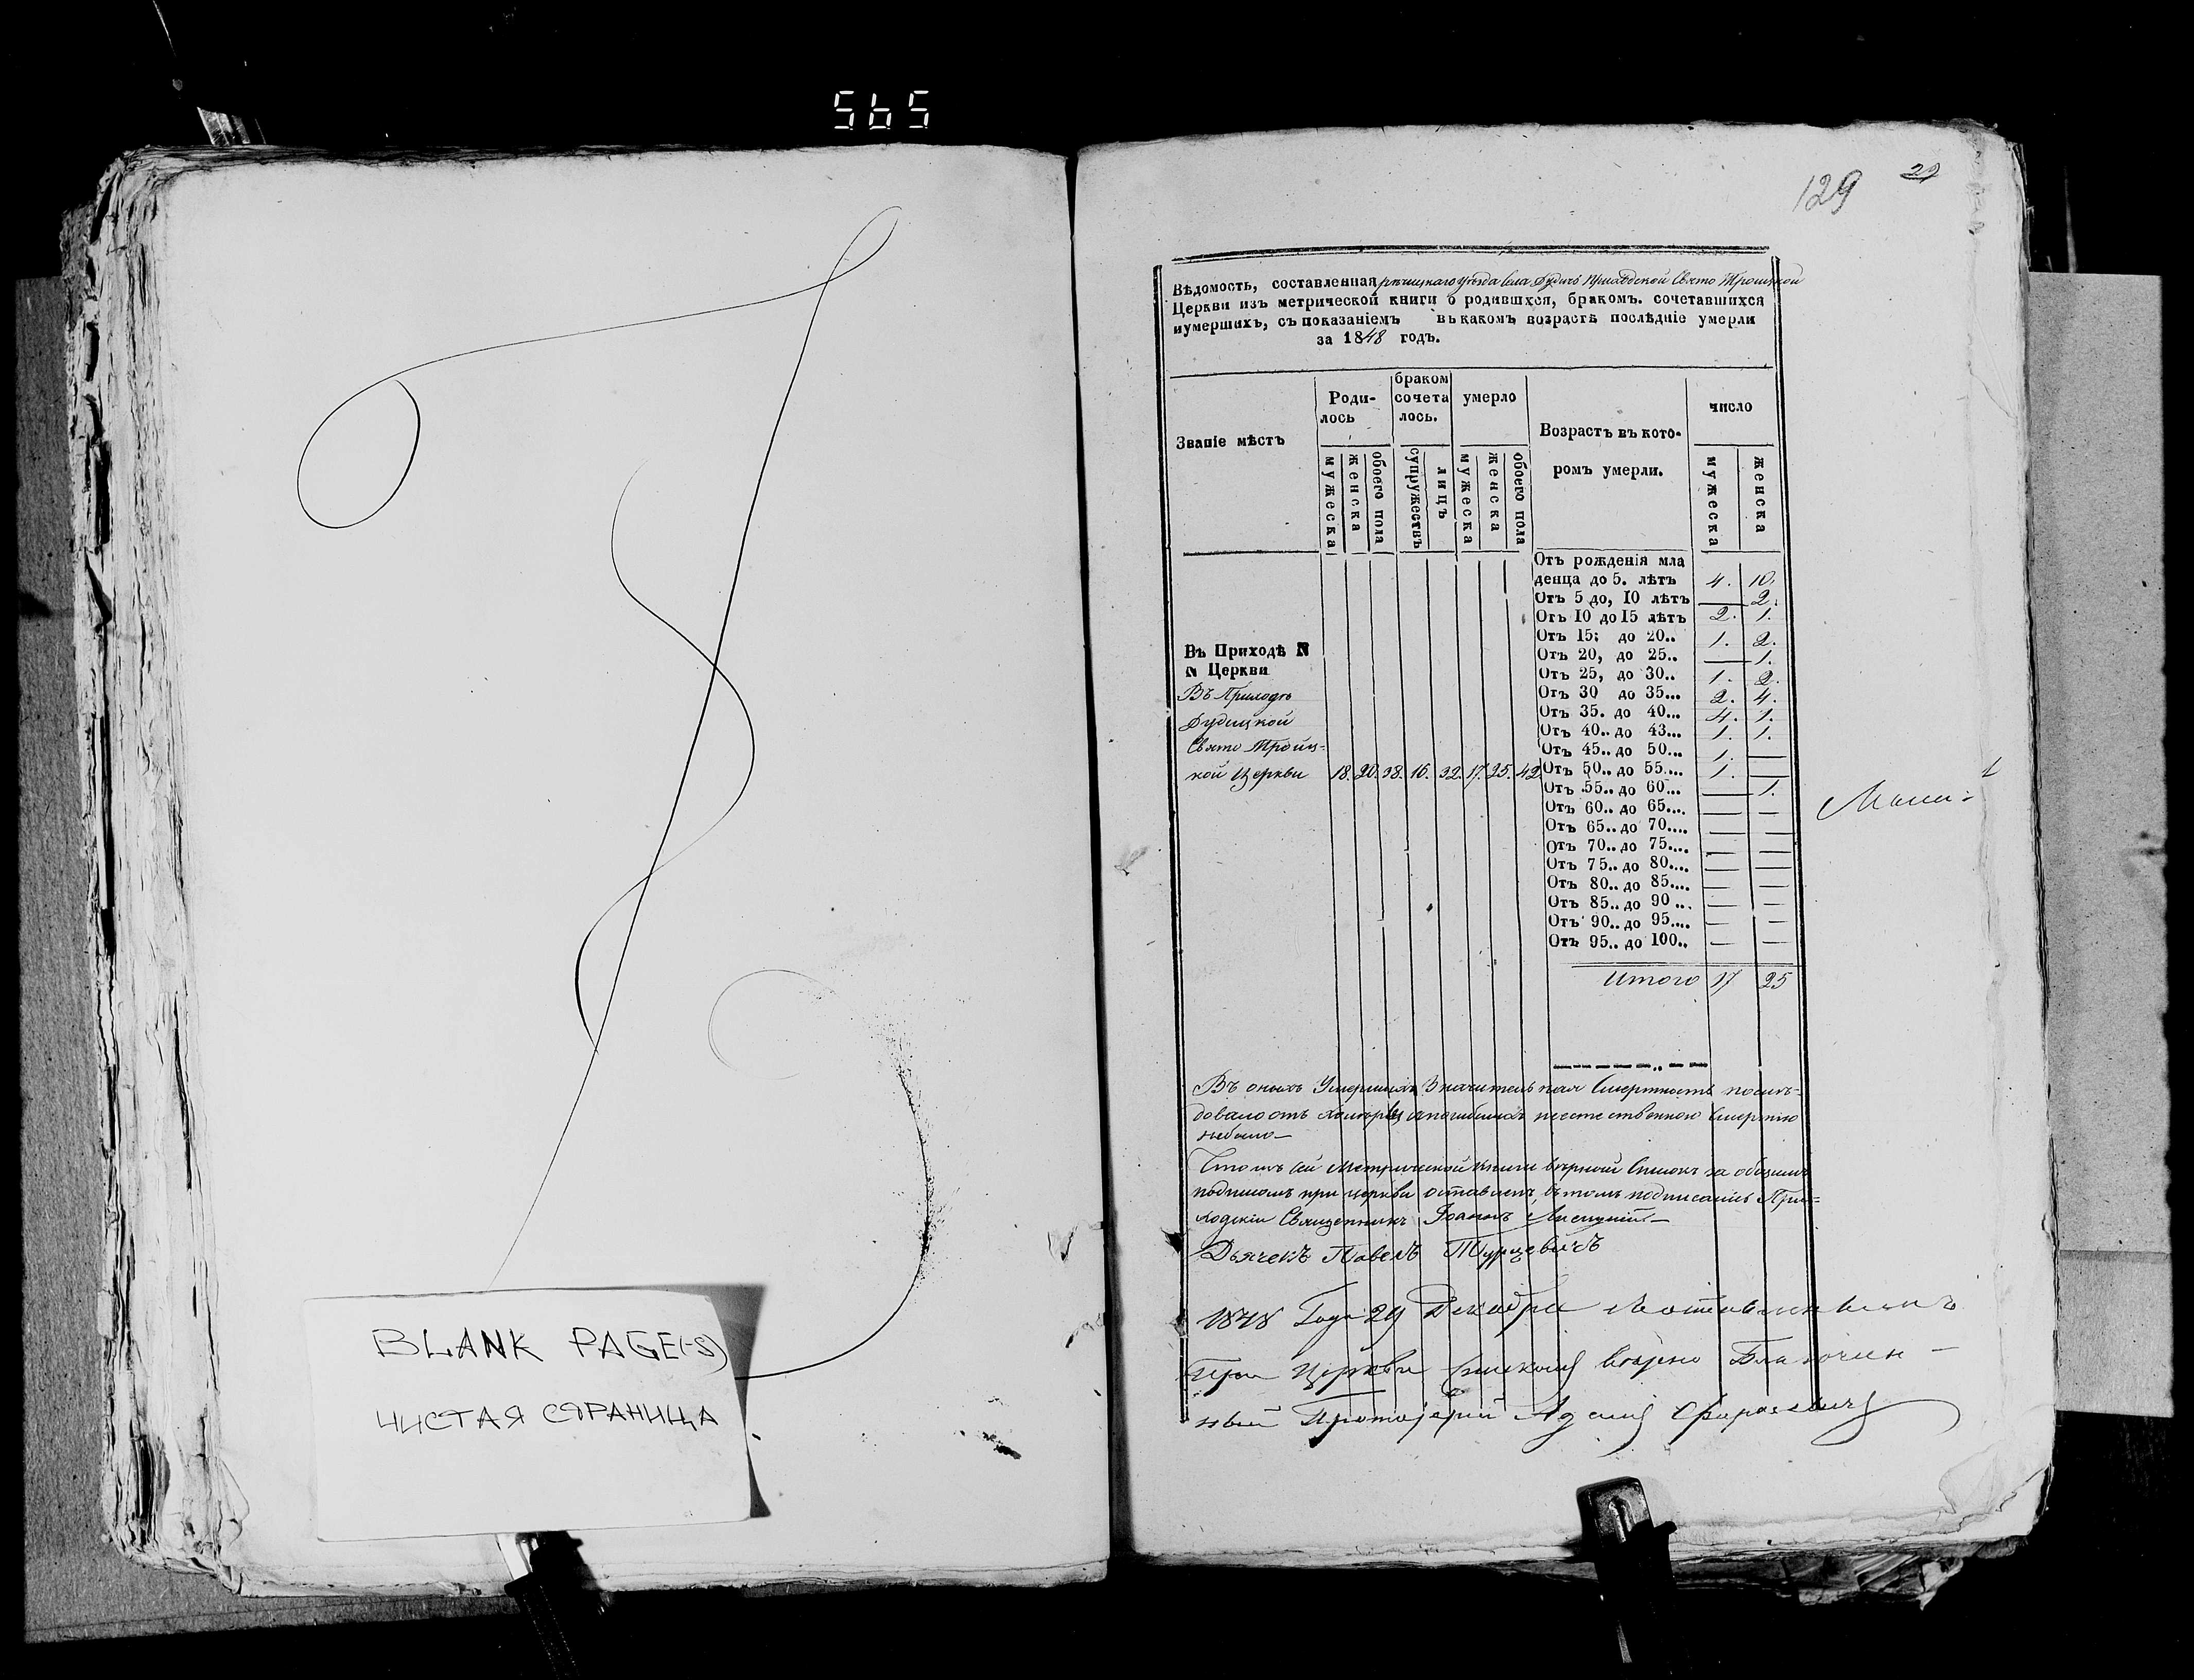 565
BLANK PAGE(-S)
ЧИСТАЯ СТРАНИЦА
129
Вѣдомость, составленная рѣчицкаго уѣзда села Дудичъ Приходской Свято Троицкой
Церкви изъ метрической книги о родившхся, бракомъ. сочетавшихся
иумершихъ, съ показаніемъ въ какомъ возрастѣ послѣдніе умерли
за 1848 годъ.
Званіе мѣстъ
Роди-
лось
браком
сочета
лось.
умерло
Возрастъ въ кото-
ромъ умерли.
число
мужеска
женска
обоего пола
супружествъ
лицъ
мужеска
женска
обоего пола
мужеска
женска
Отъ рожденія мла
денца до 5. лѣтъ 4. 10.
Отъ 5 до, 10 лѣтъ — 2.
Отъ 10 до 15 лѣтъ 2. 1.
Отъ 15; до 20.. 1. 2.
Отъ 20, до 25.. — 1.
Отъ 25, до 30.. 1. 2.
Отъ 30 до 35... 2. 4.
Отъ 35. до 40... 4. 1.
Отъ 40.. до 43... 1. 1.
Отъ 45.. до 50... 1. —
Отъ 50.. до 55.... 1. —
Отъ 55.. до 60... — 1.
Отъ 60.. до 65.... — —
Отъ 65.. до 70.... — —
Отъ 70.. до 75.... — —
Отъ 75.. до 80.... — —
Отъ 80.. до 85.... — —
Отъ 85.. до 90... — —
Отъ 90.. до 95.... — —
Отъ 95.. до 100.. — —
Итого 17 25
Въ Приходѣ N
N Церкви
Въ Приходѣ
Дудицкой
Свято Троиц-
кой Церкви 18. 20. 38. 16. 32. 17. 25. 42
Въ оныхъ Умершихъ Значительная Смертность послѣ-
довала отъ холеры, а погибшихъ неестественною Смертію
небыло—
Что съ сей Метрической книги вѣрный Списокъ за общимъ
подписомъ при церкви оставленъ, въ томъ подписались При-
ходскій Священникъ Іоаннъ
Дьячекъ Павелъ Турцевичъ
1848 Года 29 Декабря
При Церкви спискомъ вѣрно Благочин-
ный Протоіерей Адамъ